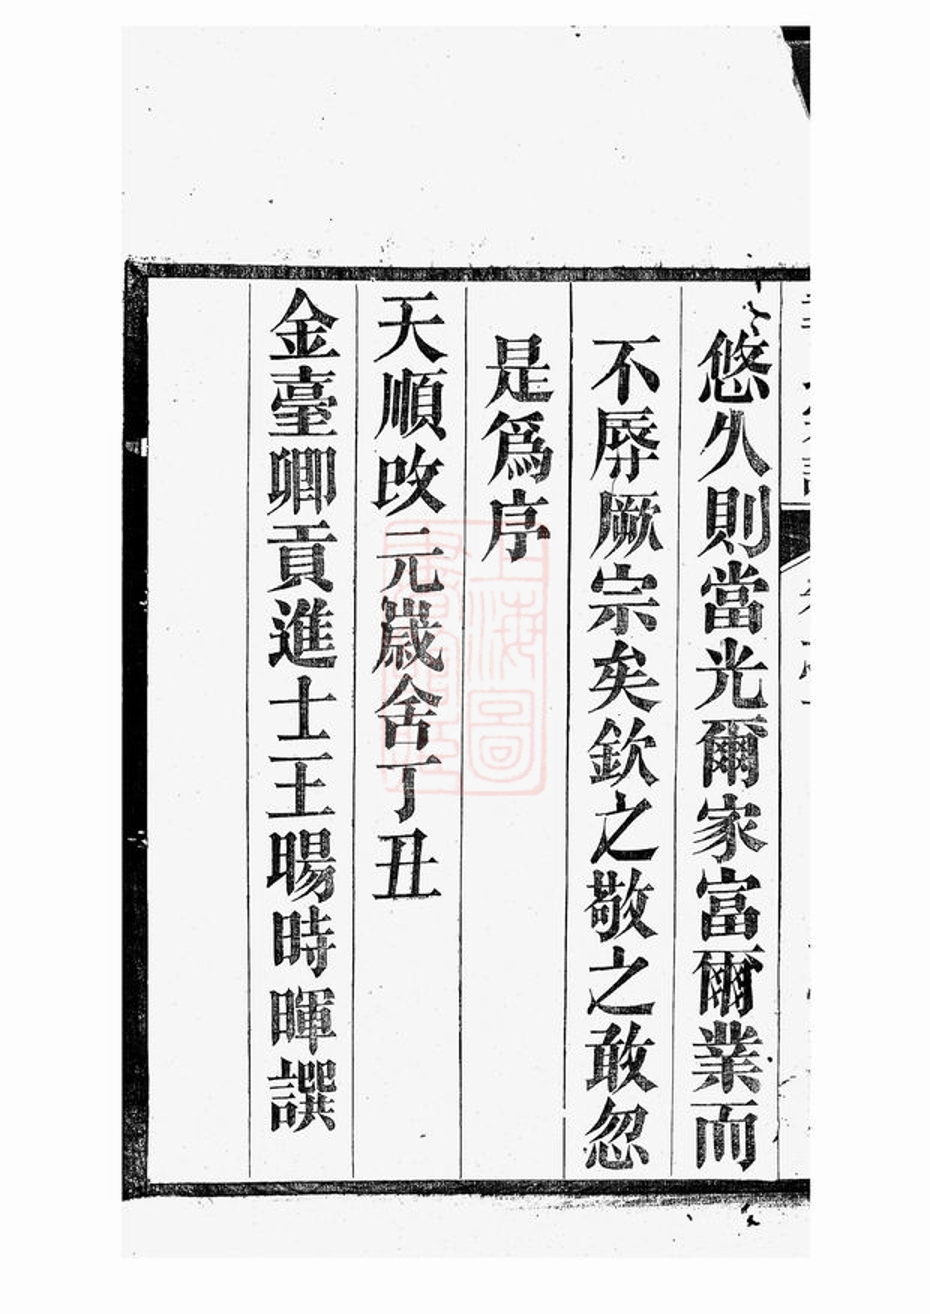 悠久則當光爾家富爾業而
不辱厥宗矣欽之敬之敢忽
是爲序
天順改元歲舍丁丑
金臺鄉貢進士王暘時暉譔
上海圖